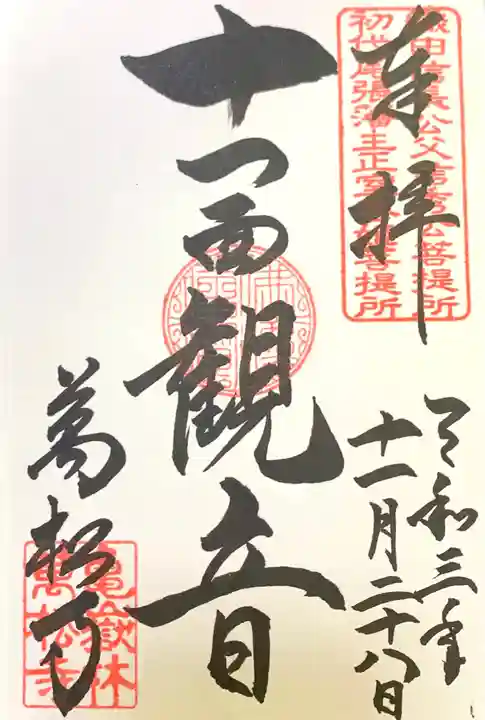 奉拝
織田信長公父信秀公菩提所
初代尾張藩主正室
菩提所
令和三年
十一月二十八日
十一面観音
萬松寺
亀嶽林
萬松寺